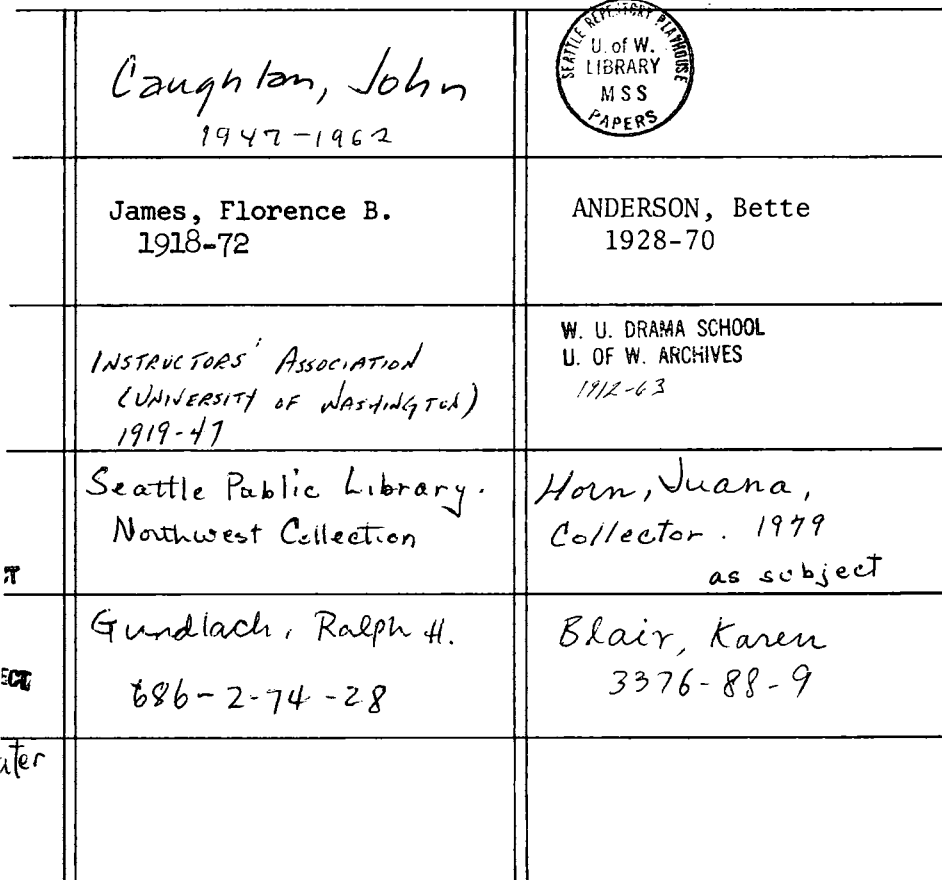 Caughlan, John
1947-1962
SEATTLE REPERTORY PLAYHOUSE
U. of W.
LIBRARY
MSS
PAPERS
James, Florence B.
1918-72
ANDERSON, Bette
1928-70
INSTRUCTORS' ASSOCIATION
(UNIVERSITY OF WASHINGTON)
1919-47
W. U. DRAMA SCHOOL
U. OF W. ARCHIVES
1912-63
Seattle Public Library.
Northwest Collection
Horn, Juana,
Collector. 1979
as subject
Gundlach, Ralph H.
686-2-74-28
Blair, Karen
3376-88-9